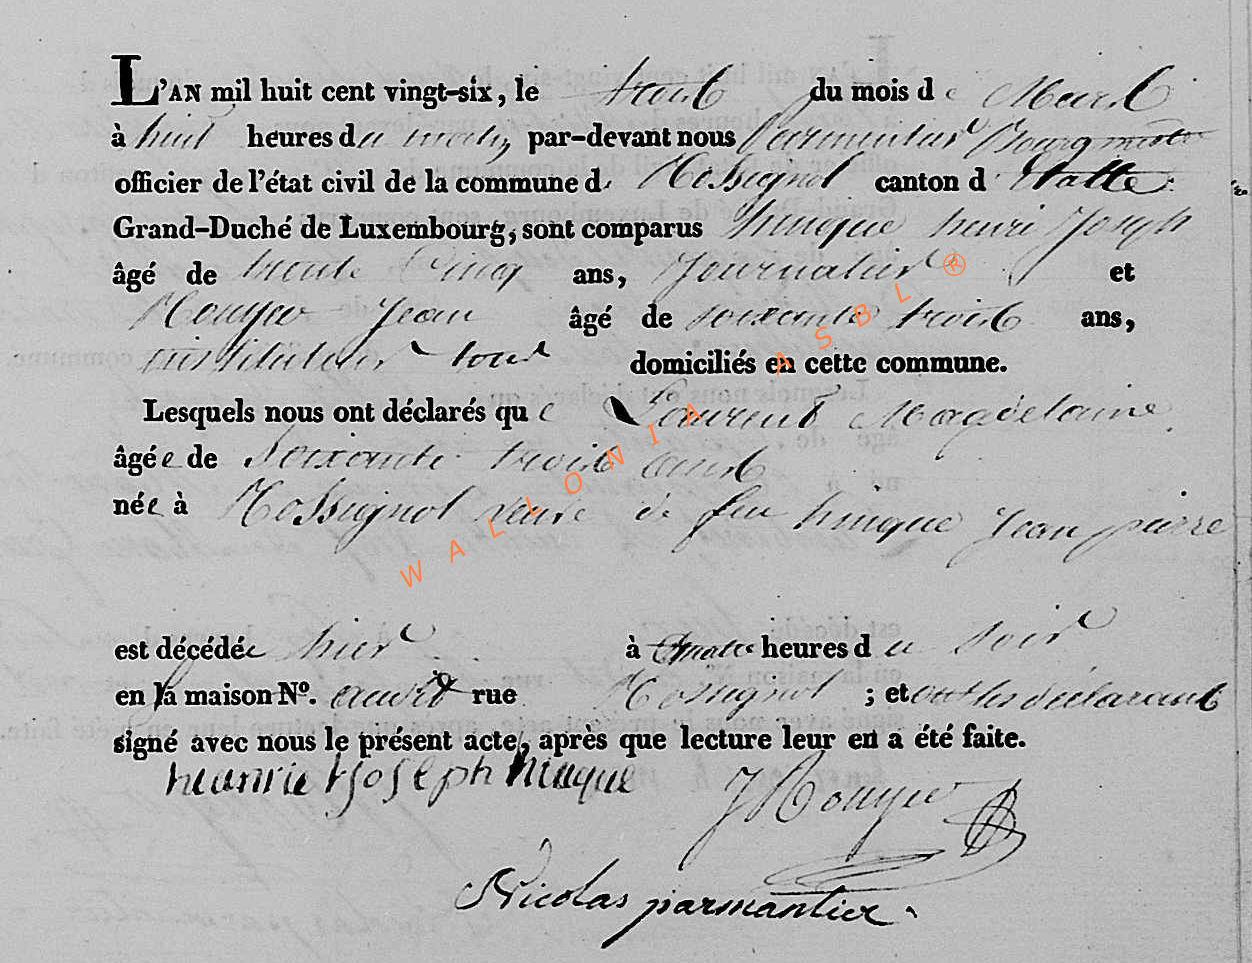 L'AN mil huit cent vingt-six, le trois du mois de Mars
à huit heures du matin par-devant nous Parmentier Bourgmestre
officier de l'état civil de la commune de Rossignol canton d' Etalle
Grand-Duché de Luxembourg, sont comparus hinque henri Joseph
âgé de trente Cinq ans, Journalier et
Rouyer Jean âgé de soixante trois ans,
instituteur tous domiciliés en cette commune.
Lesquels nous ont déclarés que Laurent Magdelaine
âgée de Soixante trois ans
née à Rossignol veuve de feu hinque Jean pierre
est décédée hier à quatre heures du soir
en la maison No. audit rue Rossignol ; et ont les déclarants
signé avec nous le présent acte, après que lecture leur en a été faite.
heanrie hJoseph hinque JRouyer
Nicolas parmantier
WALLONIA ASBL ®